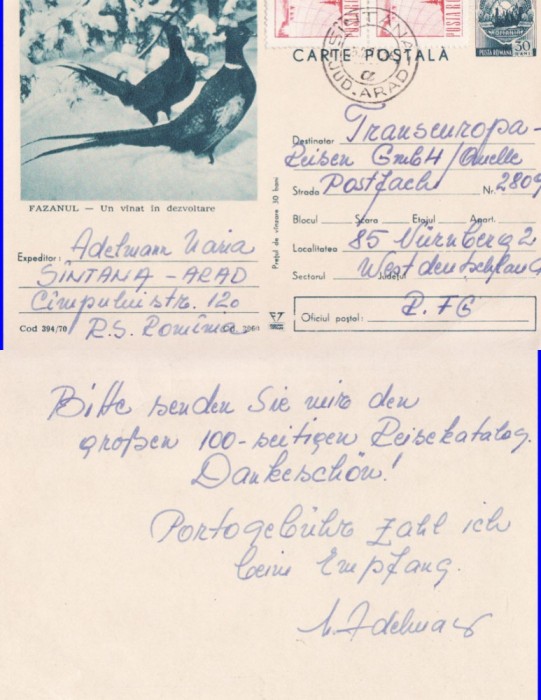 CARTE POȘTALĂ
POSTA ROMANA
30
BANI
SÎNTANA
JUD. ARAD
FAZANUL — Un vînat în dezvoltare
Expeditor: Adelmann Maria
SÎNTANA - ARAD
Cîmpului str. 120
R.S. România
Cod 394/70
Prețul de vînzare 30 bani
Destinatar Transeuropa-
Reisen GmbH/Quelle
Strada Postfach Nr. 2809
Blocul Scara Etajul Apart.
Localitatea 85 Nürnberg 2
Sectorul Județul Westdeutschland
Oficiul poștal: R.FG
Bitte senden Sie mir den
großen 100-seitigen Reisekatalog.
Dankeschön!
Portogebühr zahl ich
beim Empfang.